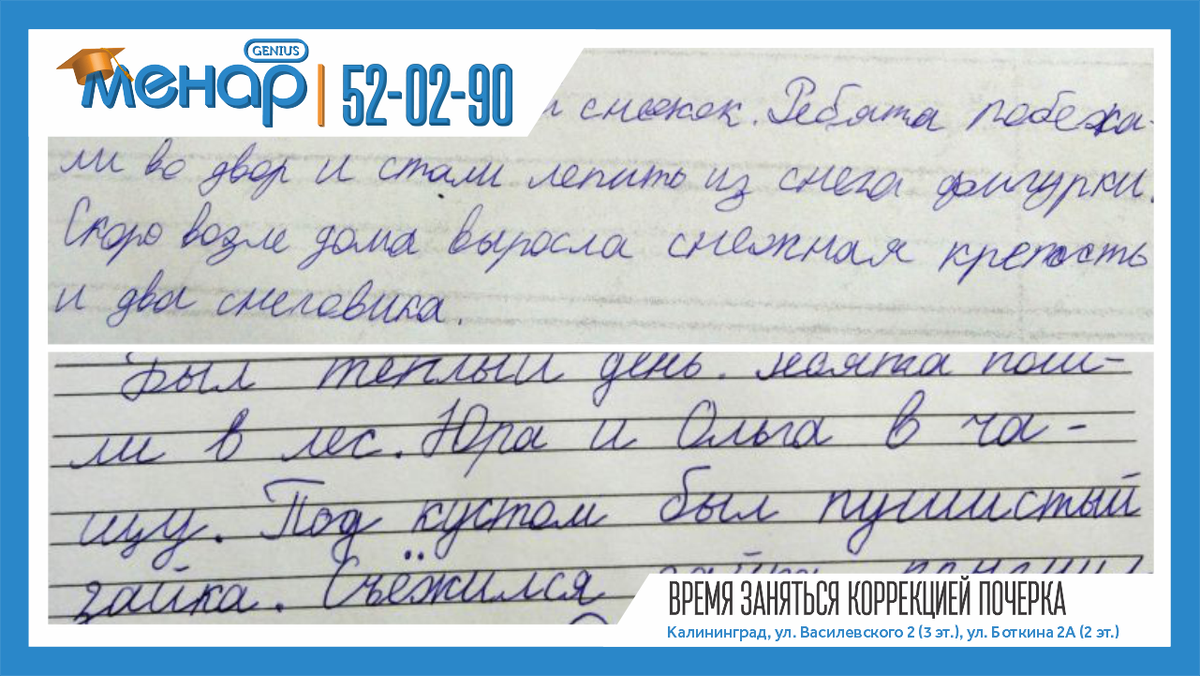 GENIUS
менар
52-02-90
снежок. Ребята побежа-
ли во двор и стали лепить из снега фигурки.
Скоро возле дома выросла снежная крепость
и два снеговика.
Был теплый день. Ребята пош-
ли в лес. Юра и Ольга в ча-
щу. Под кустом был пушистый
зайка. Съёжился зайка
ВРЕМЯ ЗАНЯТЬСЯ КОРРЕКЦИЕЙ ПОЧЕРКА
Калининград, ул. Василевского 2 (3 эт.), ул. Боткина 2А (2 эт.)